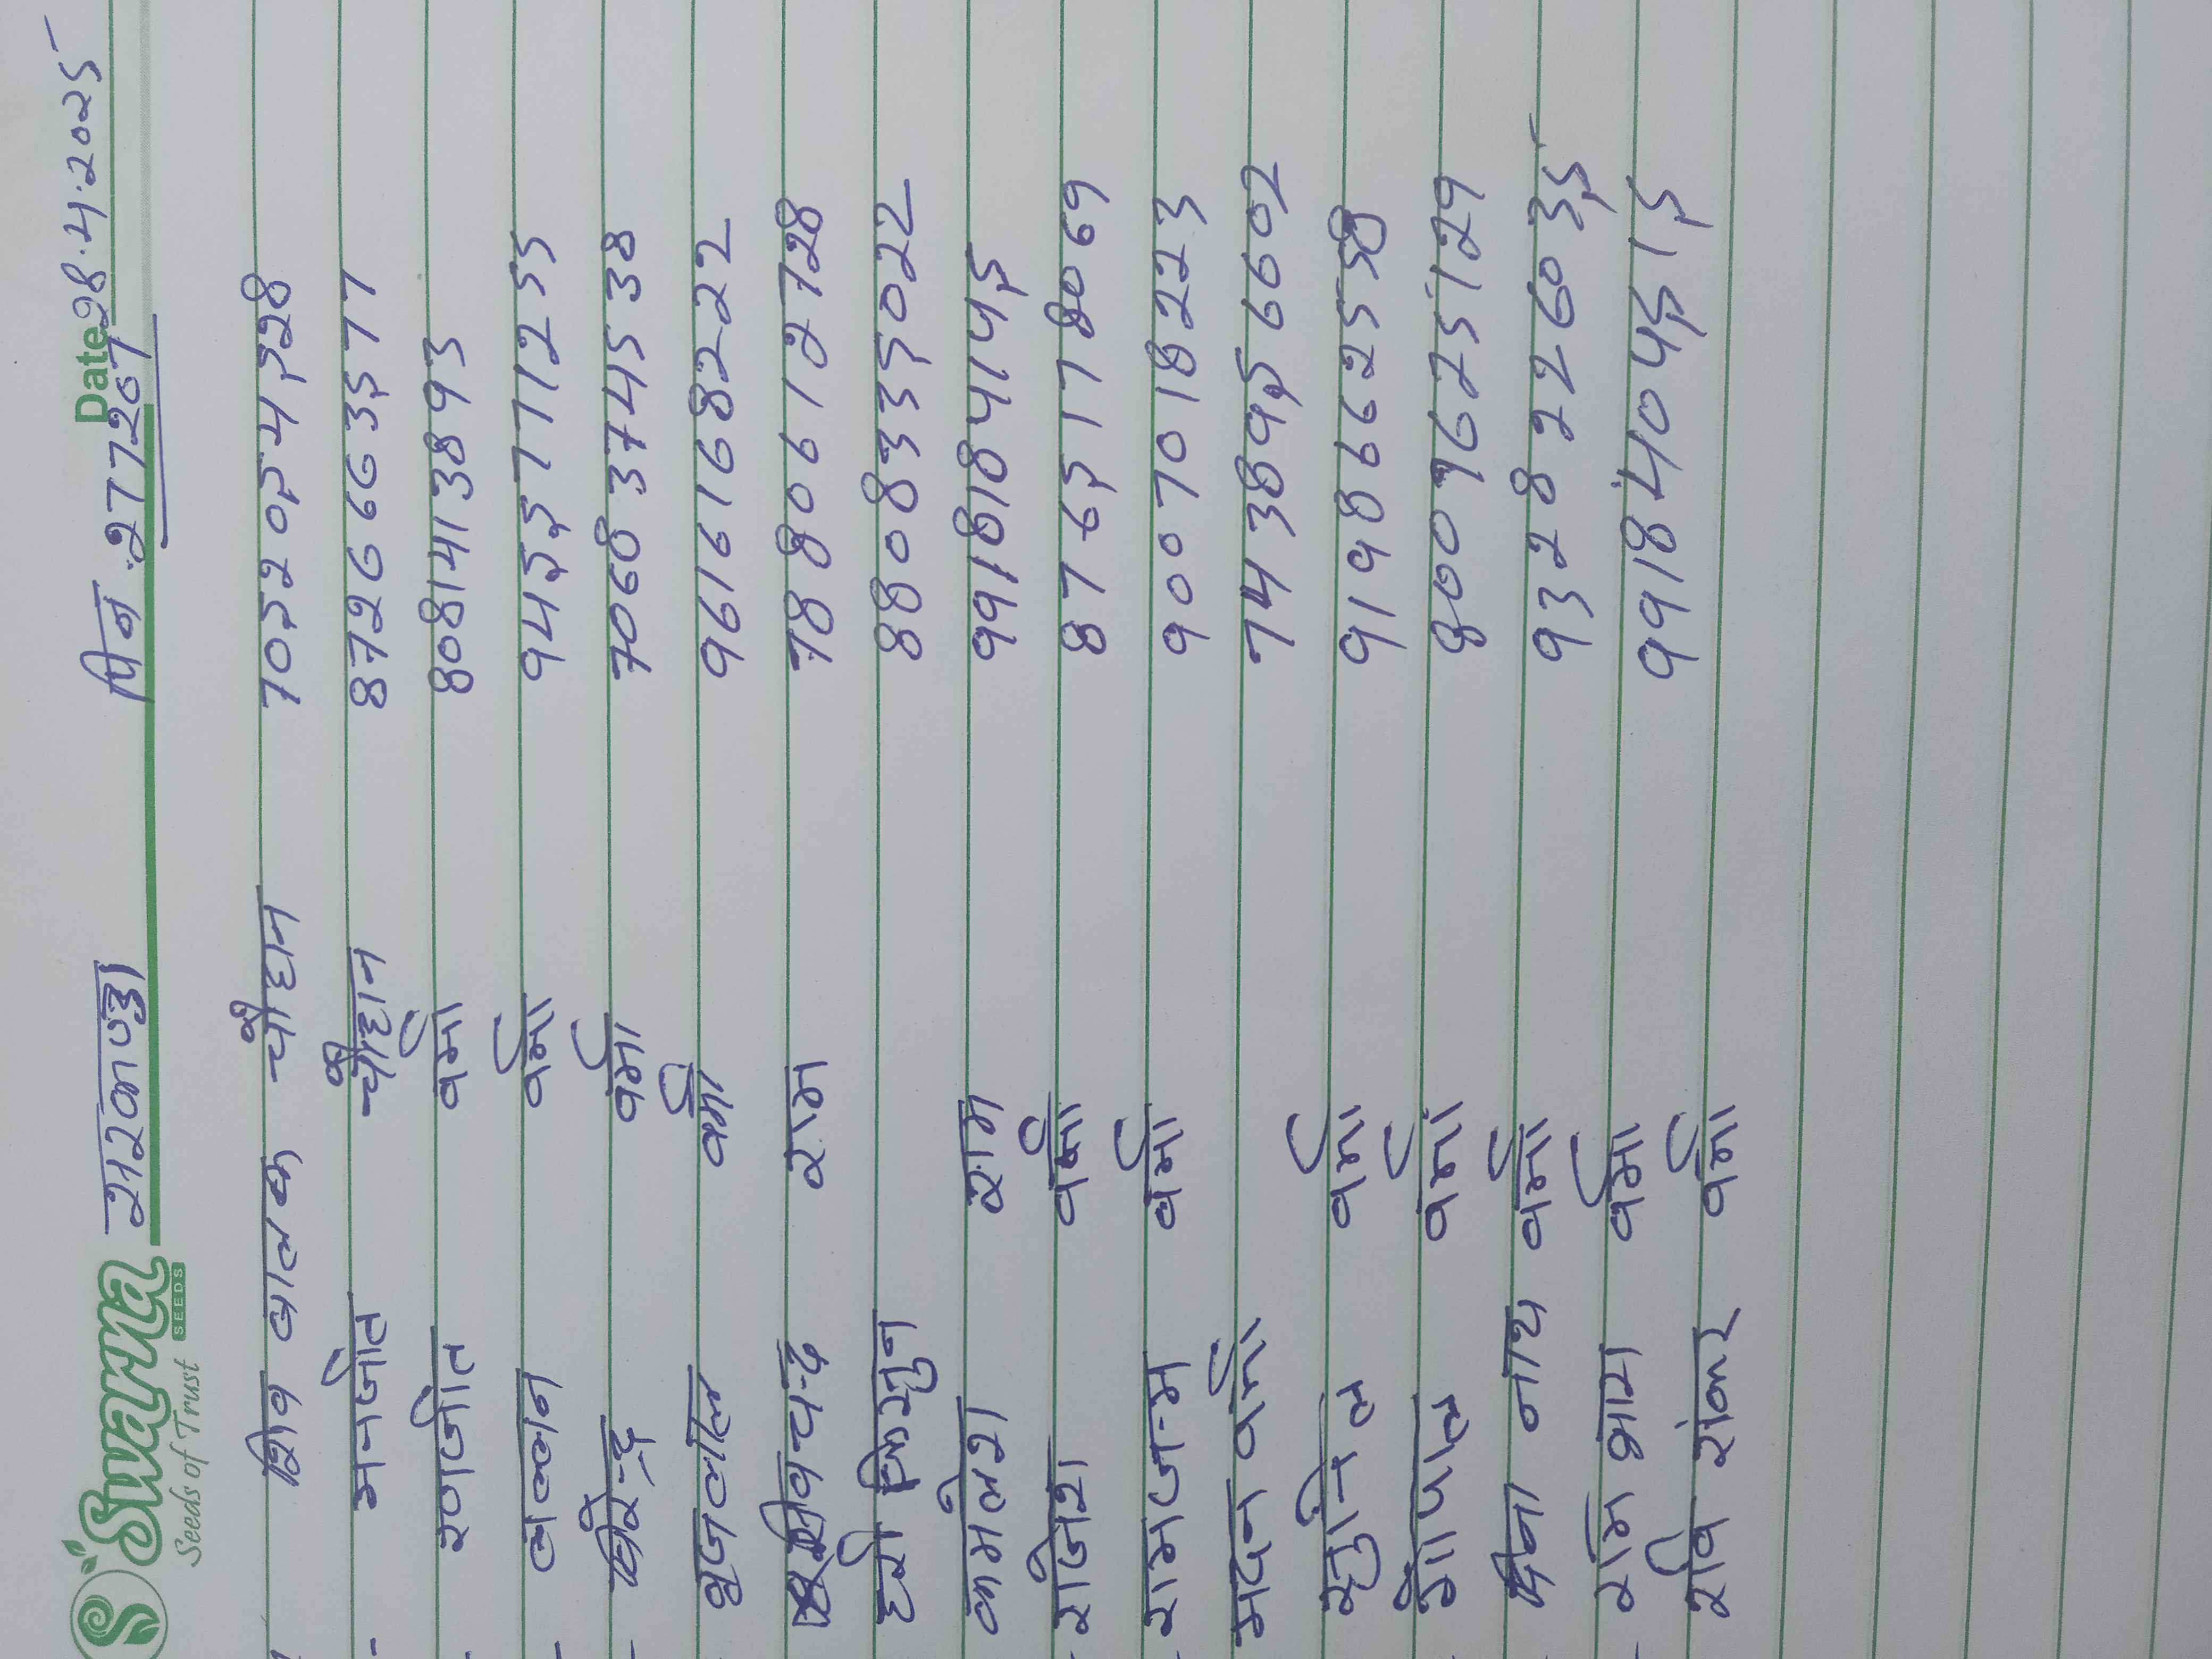 Swarna सरकण्डा पिन :277207 Date 28.4.2025
SEEDS
Seeds of Trust
शिव बालक चौहान 7052054528
मनजीत चौहान 8726663577
रणजीत वर्मा 8081413893
लल्लन वर्मा 9455771255
विरेन्द्र वर्मा 7068374538
बृजलाल वर्मा 9616168222
शिवचन्द राम 7880612728
हरी किसुन 8808335022
कमलेश राम 9918184145
राजेश वर्मा 8765178069
रामजन्म वर्मा 9007018223
मदन वर्मा 7438956602
सुनिल वर्मा 9198662558
गोपाल वर्मा 8009625129
नाथ वर्मा 9328226035
राम वर्मा 9918404515
रवि शंकर वर्मा